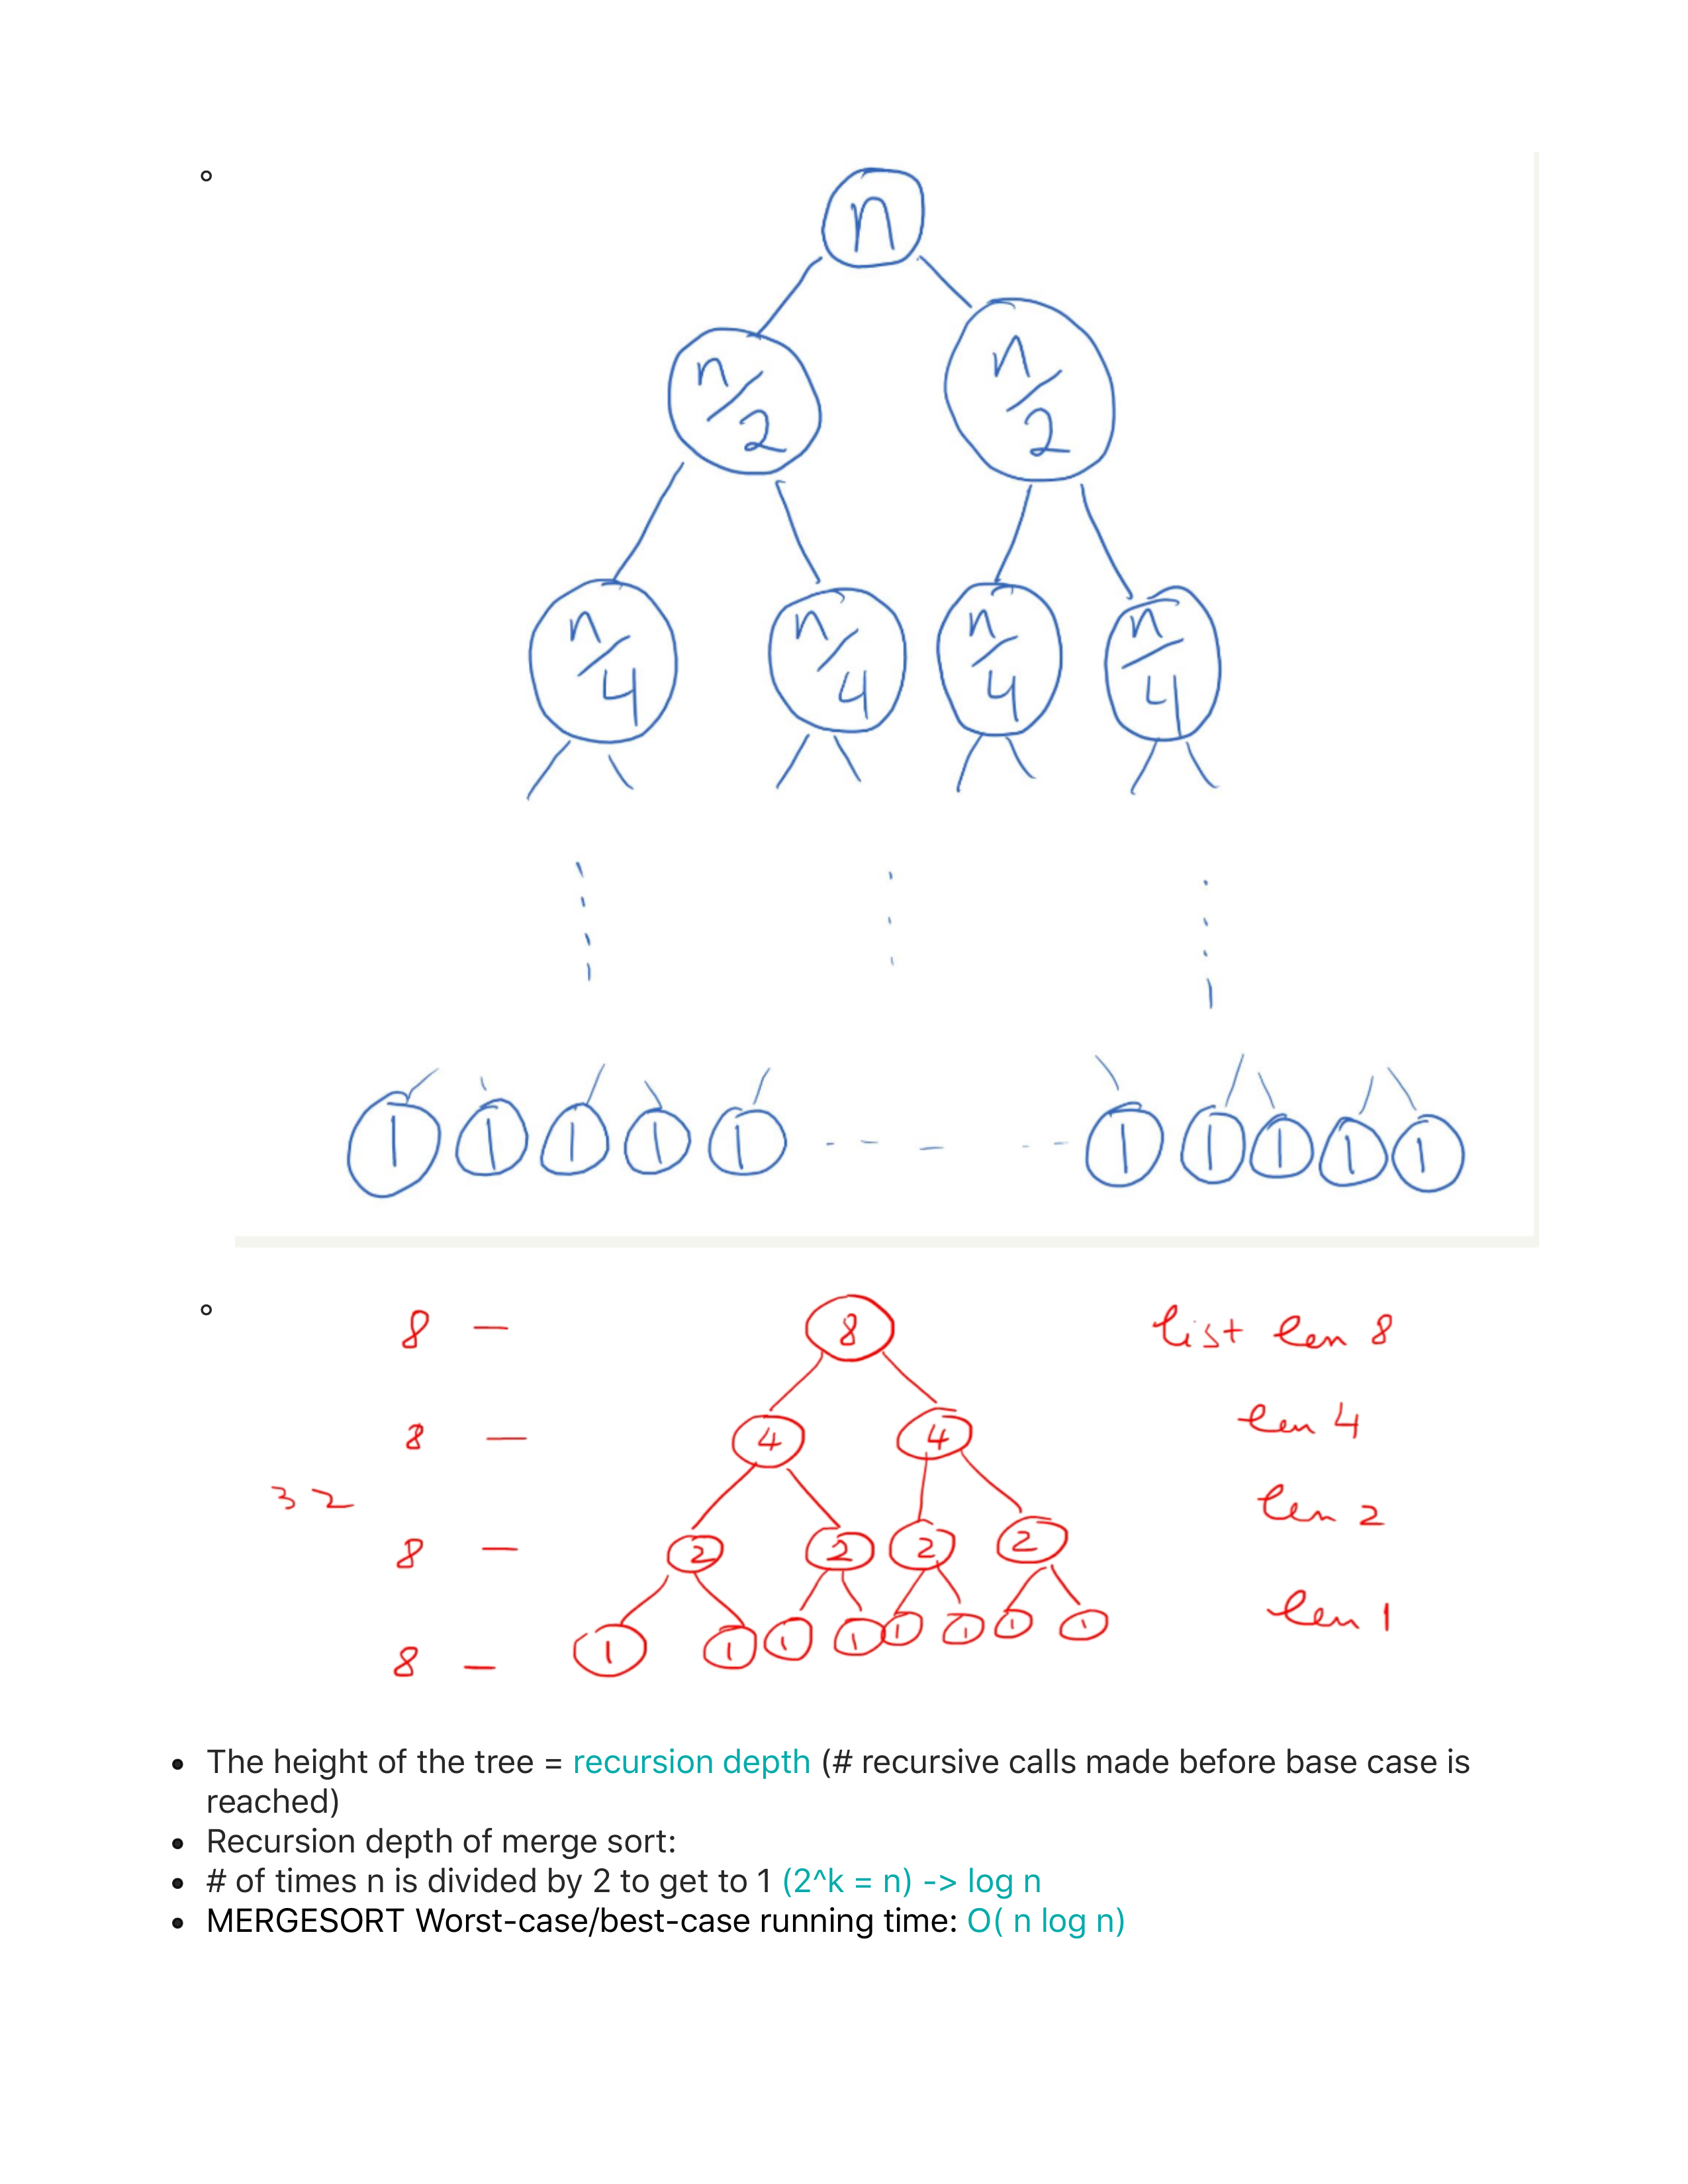 n
n/2 n/2
n/4 n/4 n/4 n/4
1 1 1 1 1 1 1 1 1 1
8 - 8 list len 8
8 - 4 4 len 4
32
len 2
8 - 2 2 2 2
len 1
8 - 1 1 1 1 1 1 1 1
The height of the tree = recursion depth (# recursive calls made before base case is
reached)
Recursion depth of merge sort:
# of times n is divided by 2 to get to 1 (2^k = n) -> log n
MERGESORT Worst-case/best-case running time: O( n log n)